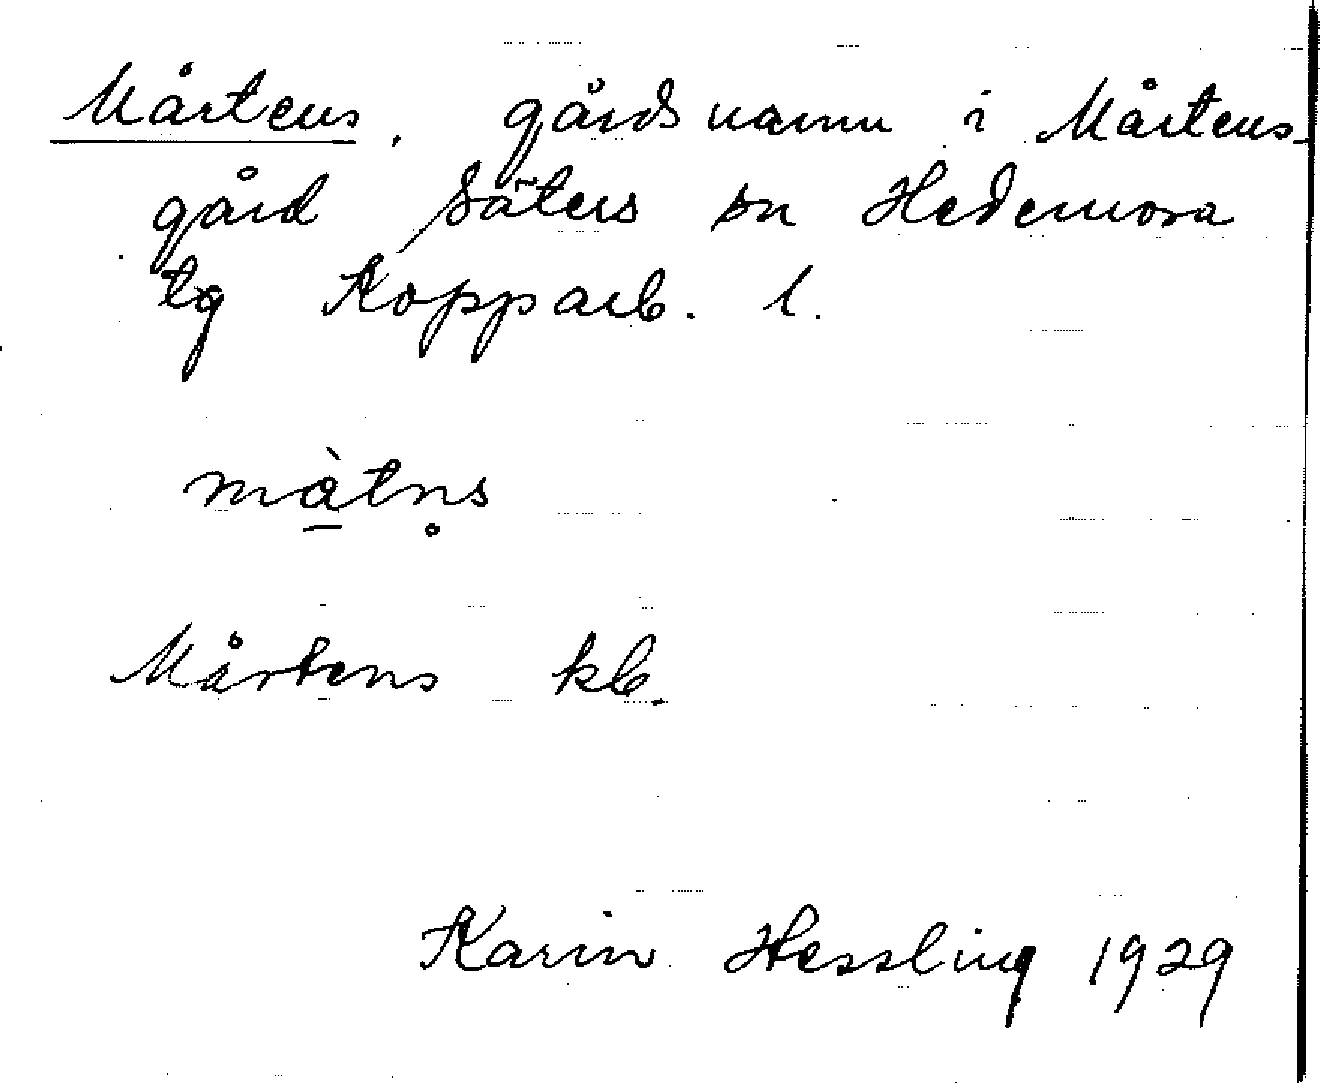 Mårtens, gårdsnamn i Mårtens-
gård Säters sn Hedemora
tg Kopparb. l.
mà̲tn̥s
Mårtens kb.
Karin Hessling 1929